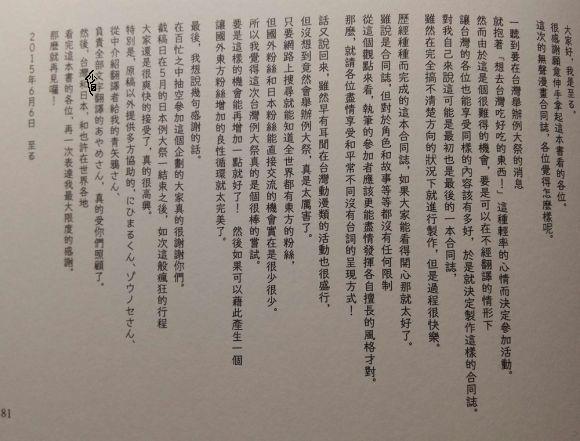 大家好，我是至る。
很感謝願意伸手拿起這本書看的各位。
這次的無聲漫畫合同誌，各位覺得怎麼樣呢。
一聽到要在台灣舉辦例大祭的消息
就抱著「想去台灣吃好吃的東西！」這種輕率的心情而決定參加活動。
然而由於這是個很難得的機會，要是可以在不經翻譯的情形下
讓台灣的各位也能享受同樣的內容該有多好，於是就決定製作這樣的合同誌。
對我自己來說這可能是最初也是最後的一本合同誌，
雖然在完全搞不清楚方向的狀況下就進行製作，但是過程很快樂。
歷經種種而完成的這本合同誌，如果大家能看得開心那就太好了。
雖說是合同誌，但對於角色和故事等等都沒有任何限制
從這個觀點來看，執筆的參加者應該更能盡情發揮各自擅長的風格才對。
那麼，就請各位盡情享受和平常不同沒有台詞的呈現方式！
話又說回來，雖然早有耳聞在台灣動漫類的活動也很盛行，
但沒想到竟然會舉辦例大祭，真是太厲害了。
只要網路上搜尋就能知道全世界都有東方的粉絲，
但國外粉絲和日本粉絲能直接交流的機會實在是很少很少。
所以我覺得這次台灣例大祭真的是個很棒的嘗試。
要是這樣的機會能再增加一點就好了！　然後如果可以藉此產生一個
讓國外東方粉絲增加的良性循環就太完美了。
最後，我想說幾句感謝的話。
在百忙之中抽空參加這個企劃的大家真的很謝謝你們。
截稿日在5月的日本例大祭一結束之後，如次這般瘋狂的行程
大家還是很爽快的接受了，真的很高興。
特別是，原稿以外提供多方協助的，にひまるくん、ゾウノセさん、
從中介紹翻譯者給我的青矢鴉さん、
負責全部文字翻譯的あやめさん，真的受你們照顧了。
然後，台灣和日本，和也許在世界各地
看完這本書的各位，再一次表達我最大限度的感謝。
那麼就再見囉！
2015年6月6日　至る
81